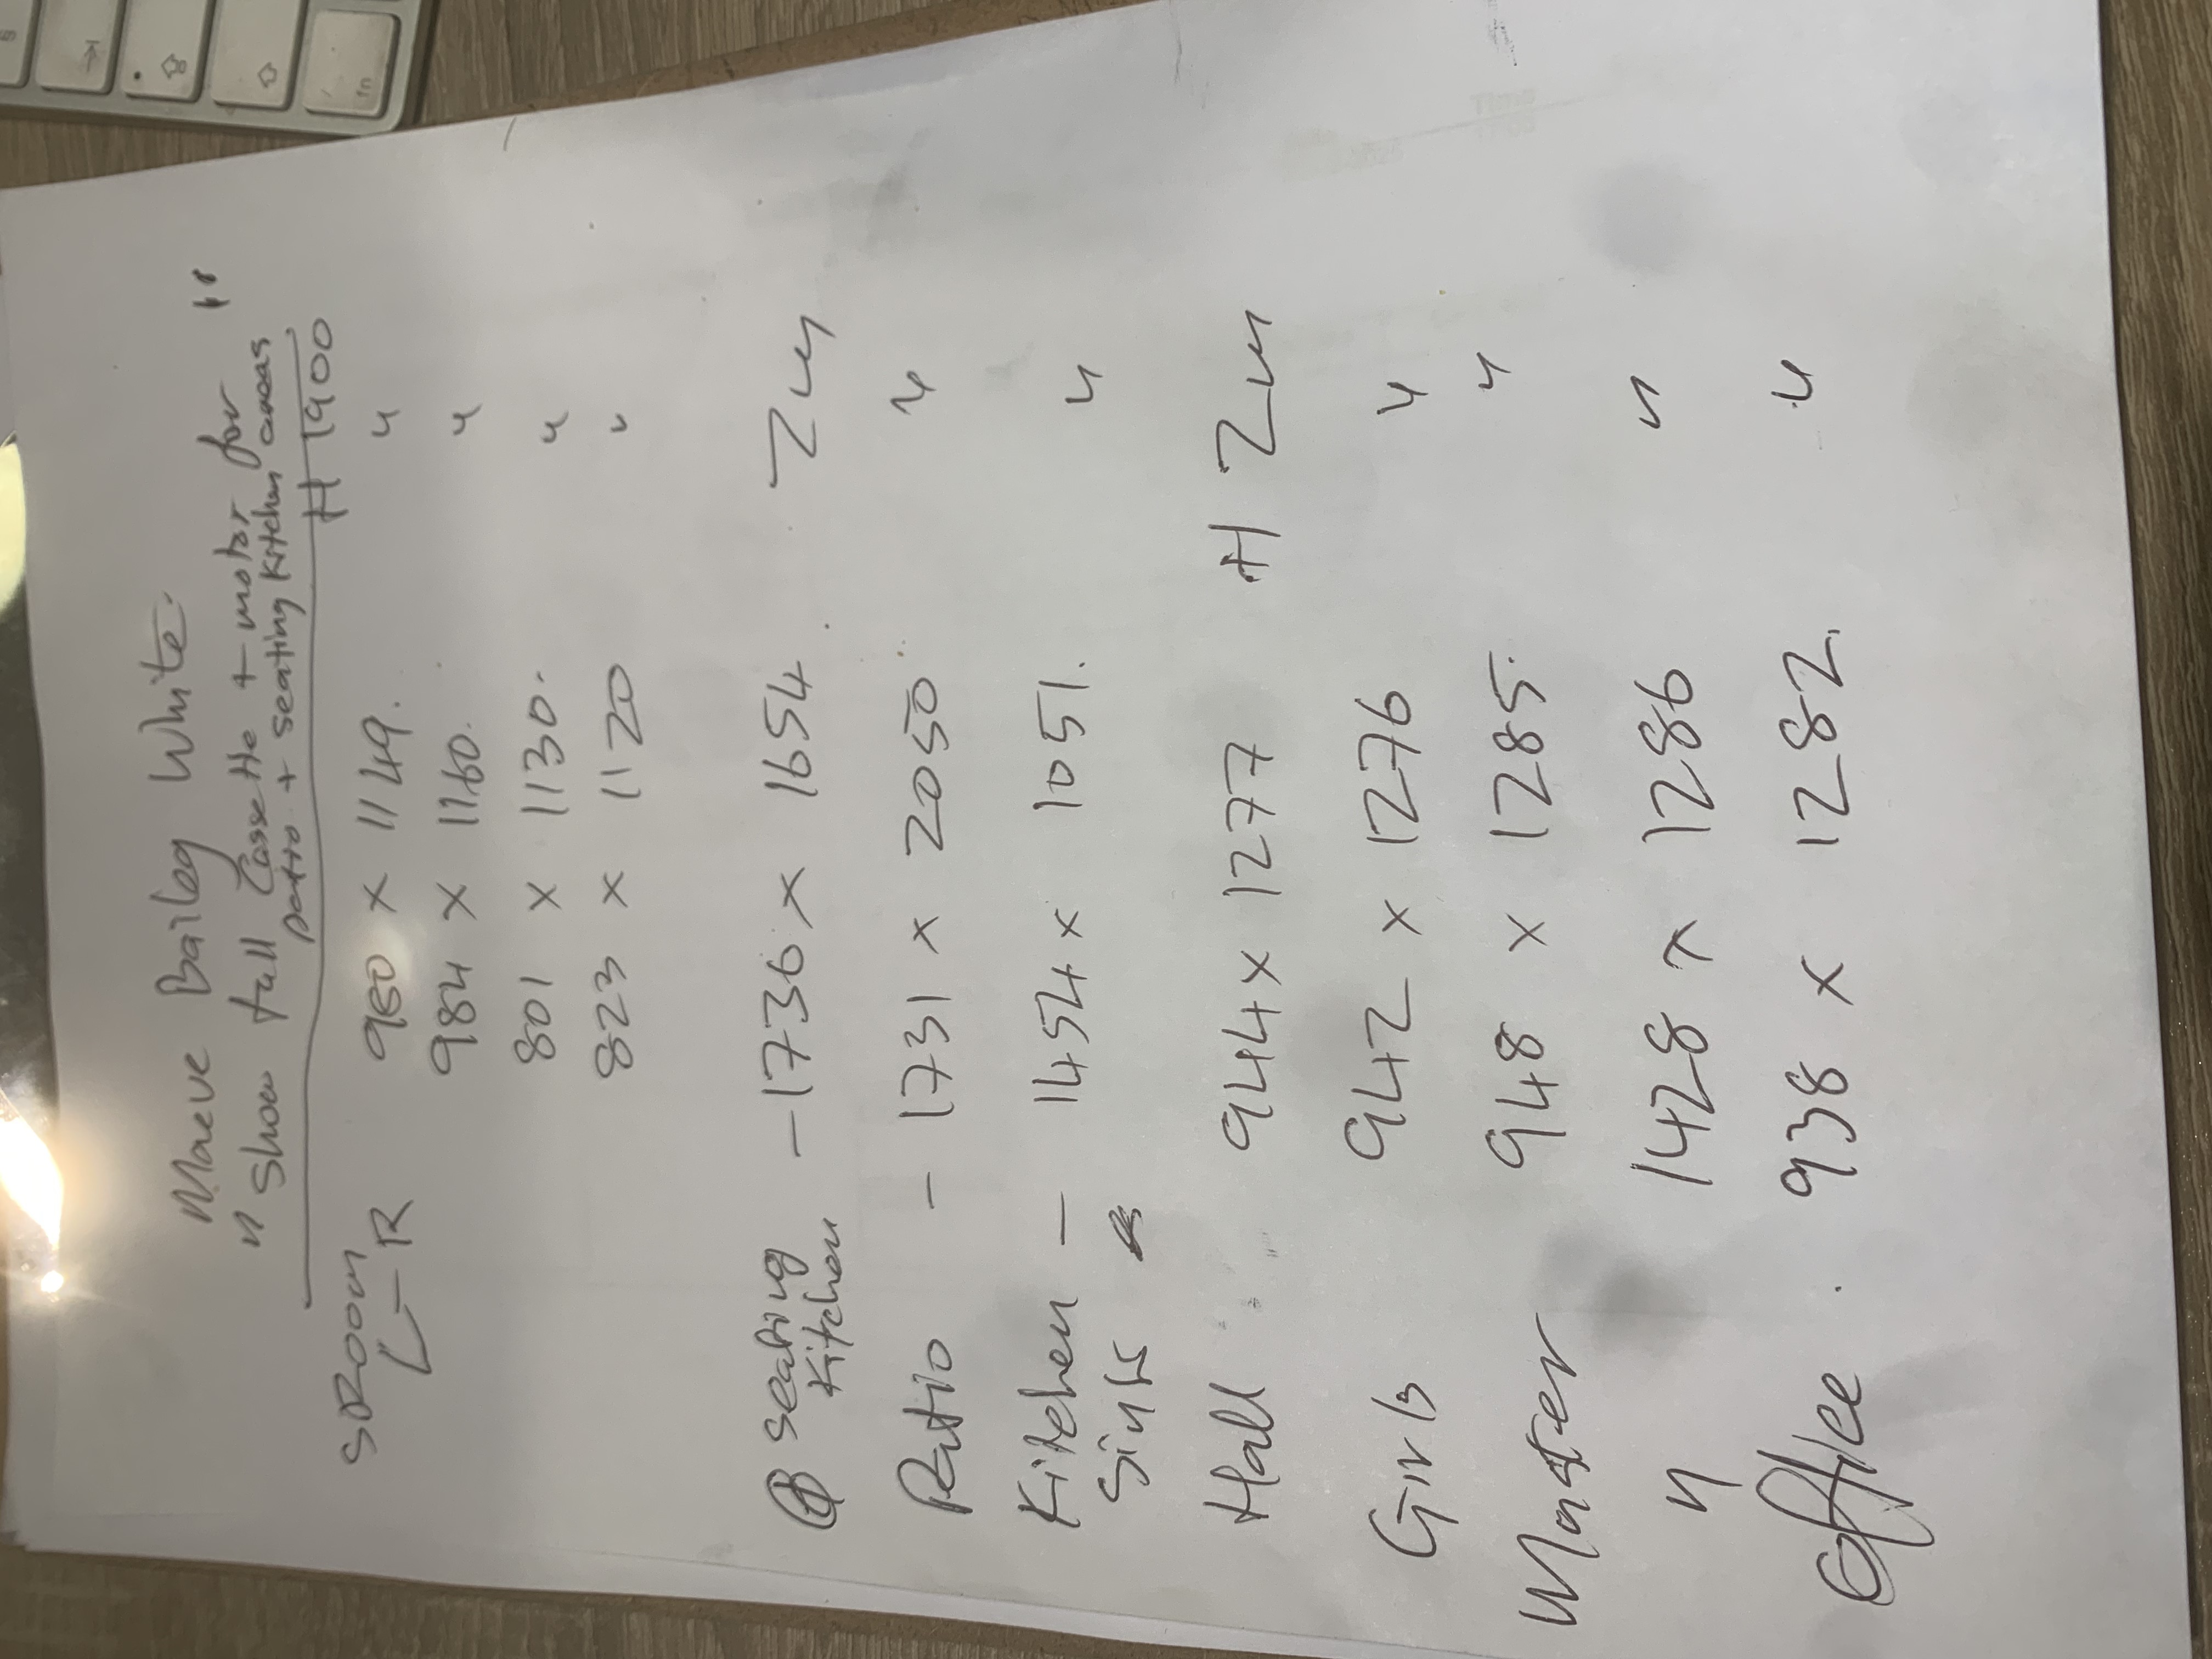 Maeve Bailey White
" show full Casette + motor for "
patio + seating kitchen areas
SRoom H 1900
L-R 980 x 1149. "
984 x 1160. "
801 x 1130. "
823 x 1120 "
seating - 1736 x 1654 2m
Kitchen
Patio - 1731 x 2050 "
Kitchen - 1454 x 1051. "
Sink
Hall 944 x 1277 H 2m
Girls 942 x 1276 "
Master 948 x 1285. "
" 1428 x 1286 "
Office. 938 x 1282. "
fn